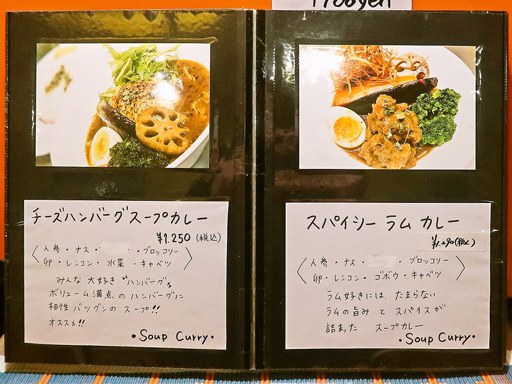 チーズハンバーグスープカレー
¥1.250(税込)
人参・ナス・ ・ブロッコリー
卵・レンコン・水菜・キャベツ
みんな大好き"ハンバーグ"
ボリューム満点のハンバーグに
相性バツグンのスープ!!
オススメ!!
・Soup Curry・
スパイシー ラム カレー
¥1.290(税込)
人参・ナス・ ・ブロッコリー
卵・レンコン・ゴボウ・キャベツ
ラム好きには たまらない
ラムの旨み と スパイスが
詰まった スープカレー
・Soup Curry・